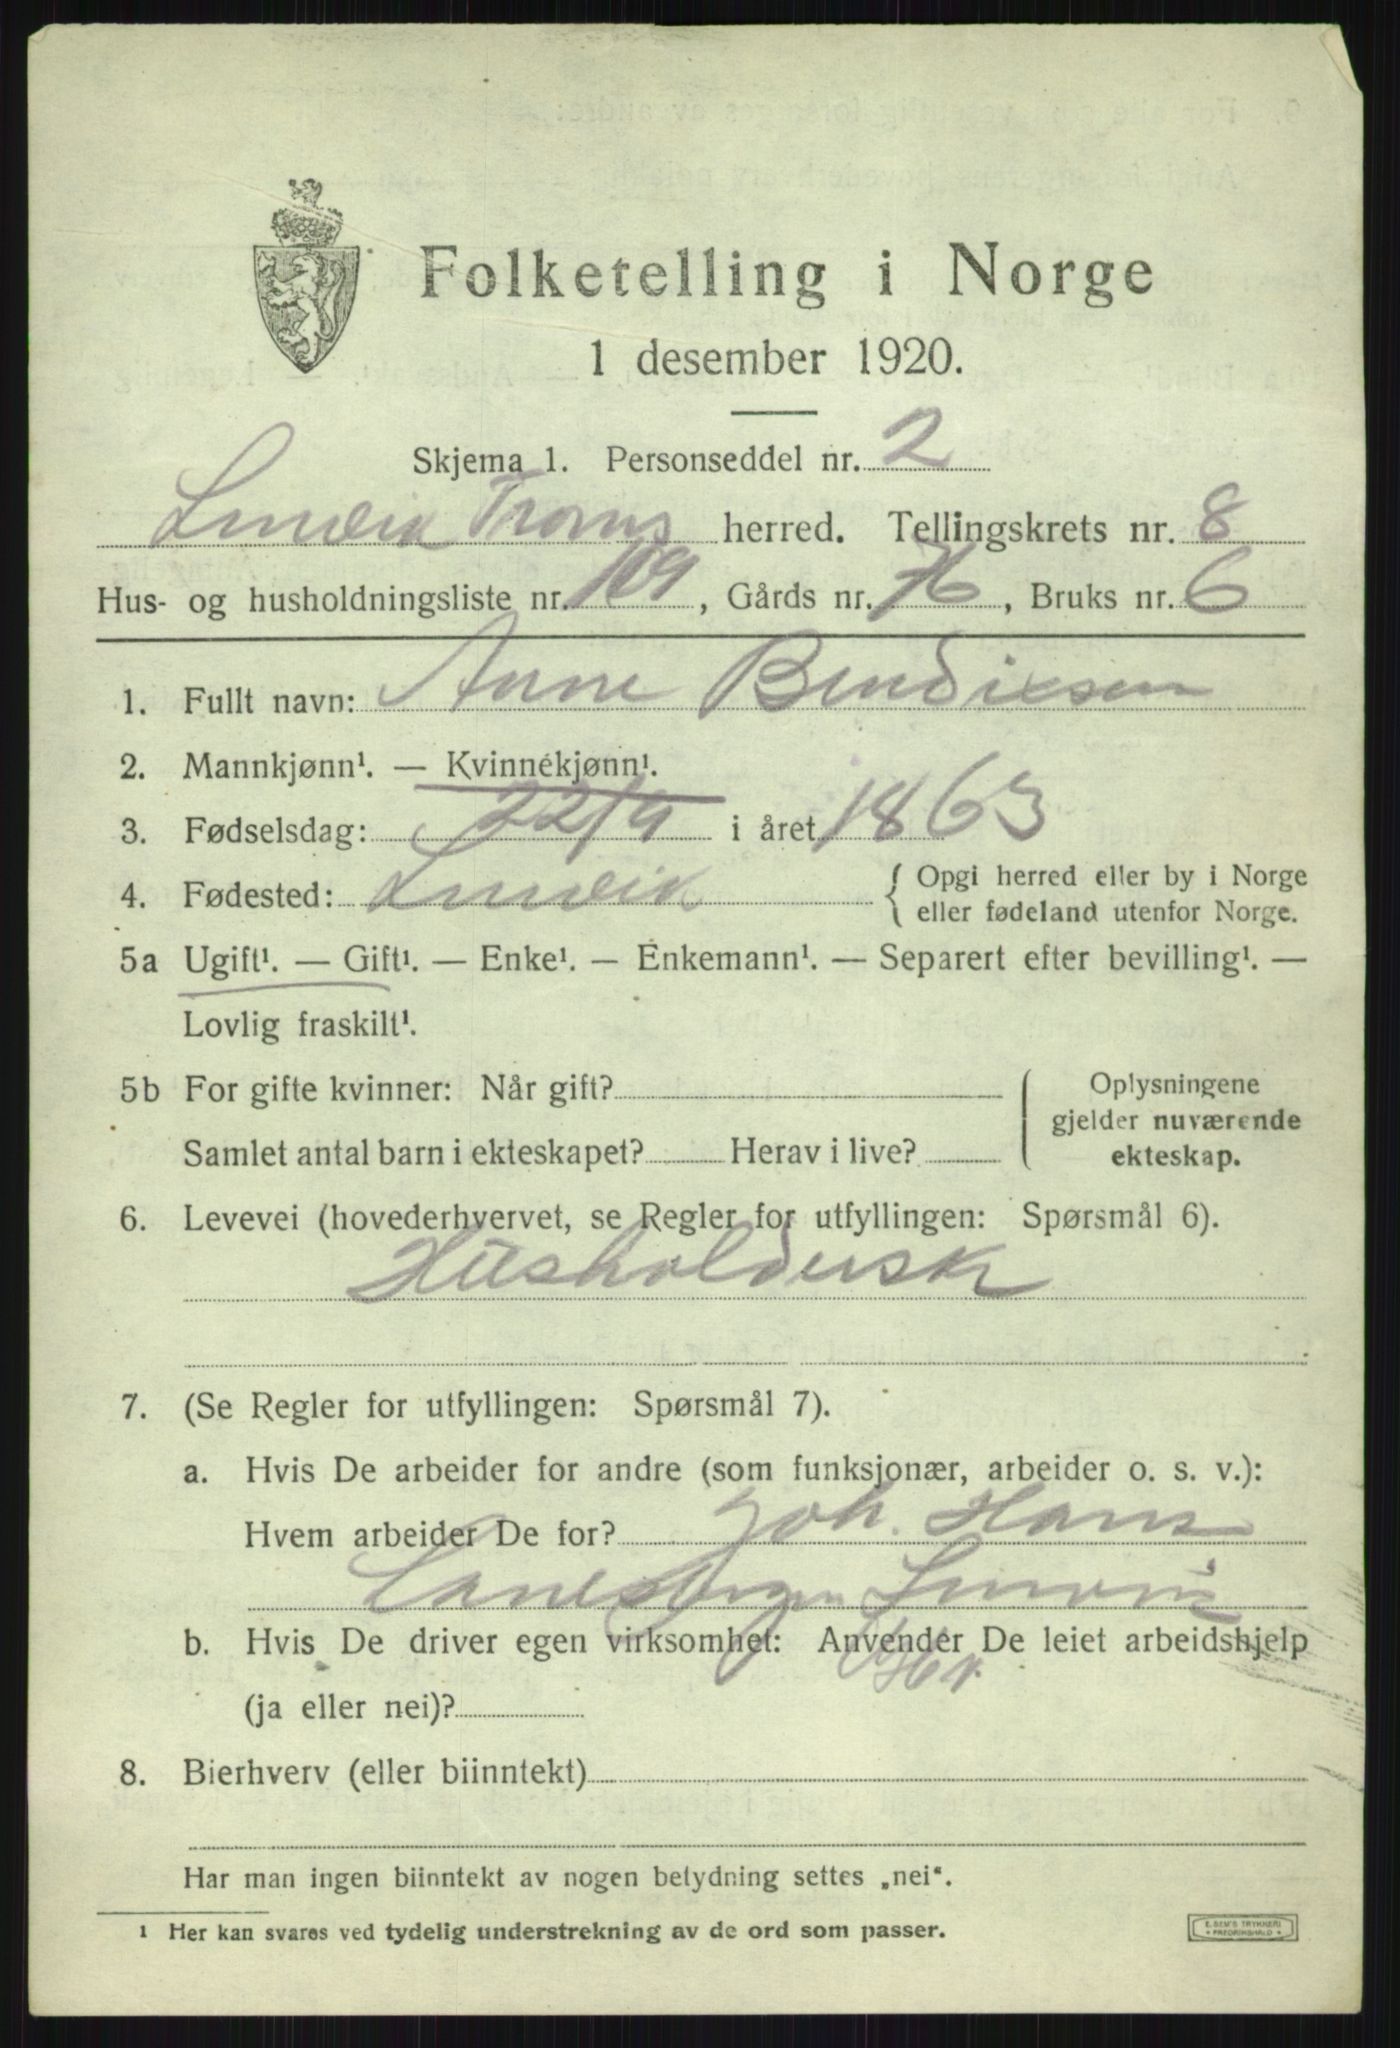 Folketelling i Norge
1 desember 1920.
Skjema 1. Personseddel nr. 2
Lenvik Troms herred. Tellingskrets nr. 8
Hus- og husholdningsliste nr. 109, Gårds nr. 76, Bruks nr. 6
1. Fullt navn: Anne Bendixsen
2. Mannkjønn¹. — Kvinnekjønn¹.
3. Fødselsdag: 22/9 i året 1863
4. Fødested: Lenvik { Opgi herred eller by i Norge
eller fødeland utenfor Norge.
5a Ugift¹. — Gift¹. — Enke¹. — Enkemann¹. — Separert efter bevilling¹. —
Lovlig fraskilt¹.
5b For gifte kvinner: Når gift? Oplysningene
gjelder nuværende
Samlet antal barn i ekteskapet? Herav i live? ekteskap.
6. Levevei (hovederhvervet, se Regler for utfyllingen: Spørsmål 6).
Husholdersk
7. (Se Regler for utfyllingen: Spørsmål 7).
a. Hvis De arbeider for andre (som funksjonær, arbeider o. s. v.):
Hvem arbeider De for? Joh. Hans
Lenvik
b. Hvis De driver egen virksomhet: Anvender De leiet arbeidshjelp
(ja eller nei)?
8. Bierhverv (eller biinntekt)
Har man ingen biinntekt av nogen betydning settes „nei“.
1 Her kan svares ved tydelig understrekning av de ord som passer.
E. SEM'S TRYKKERI
FREDRIKSHALD